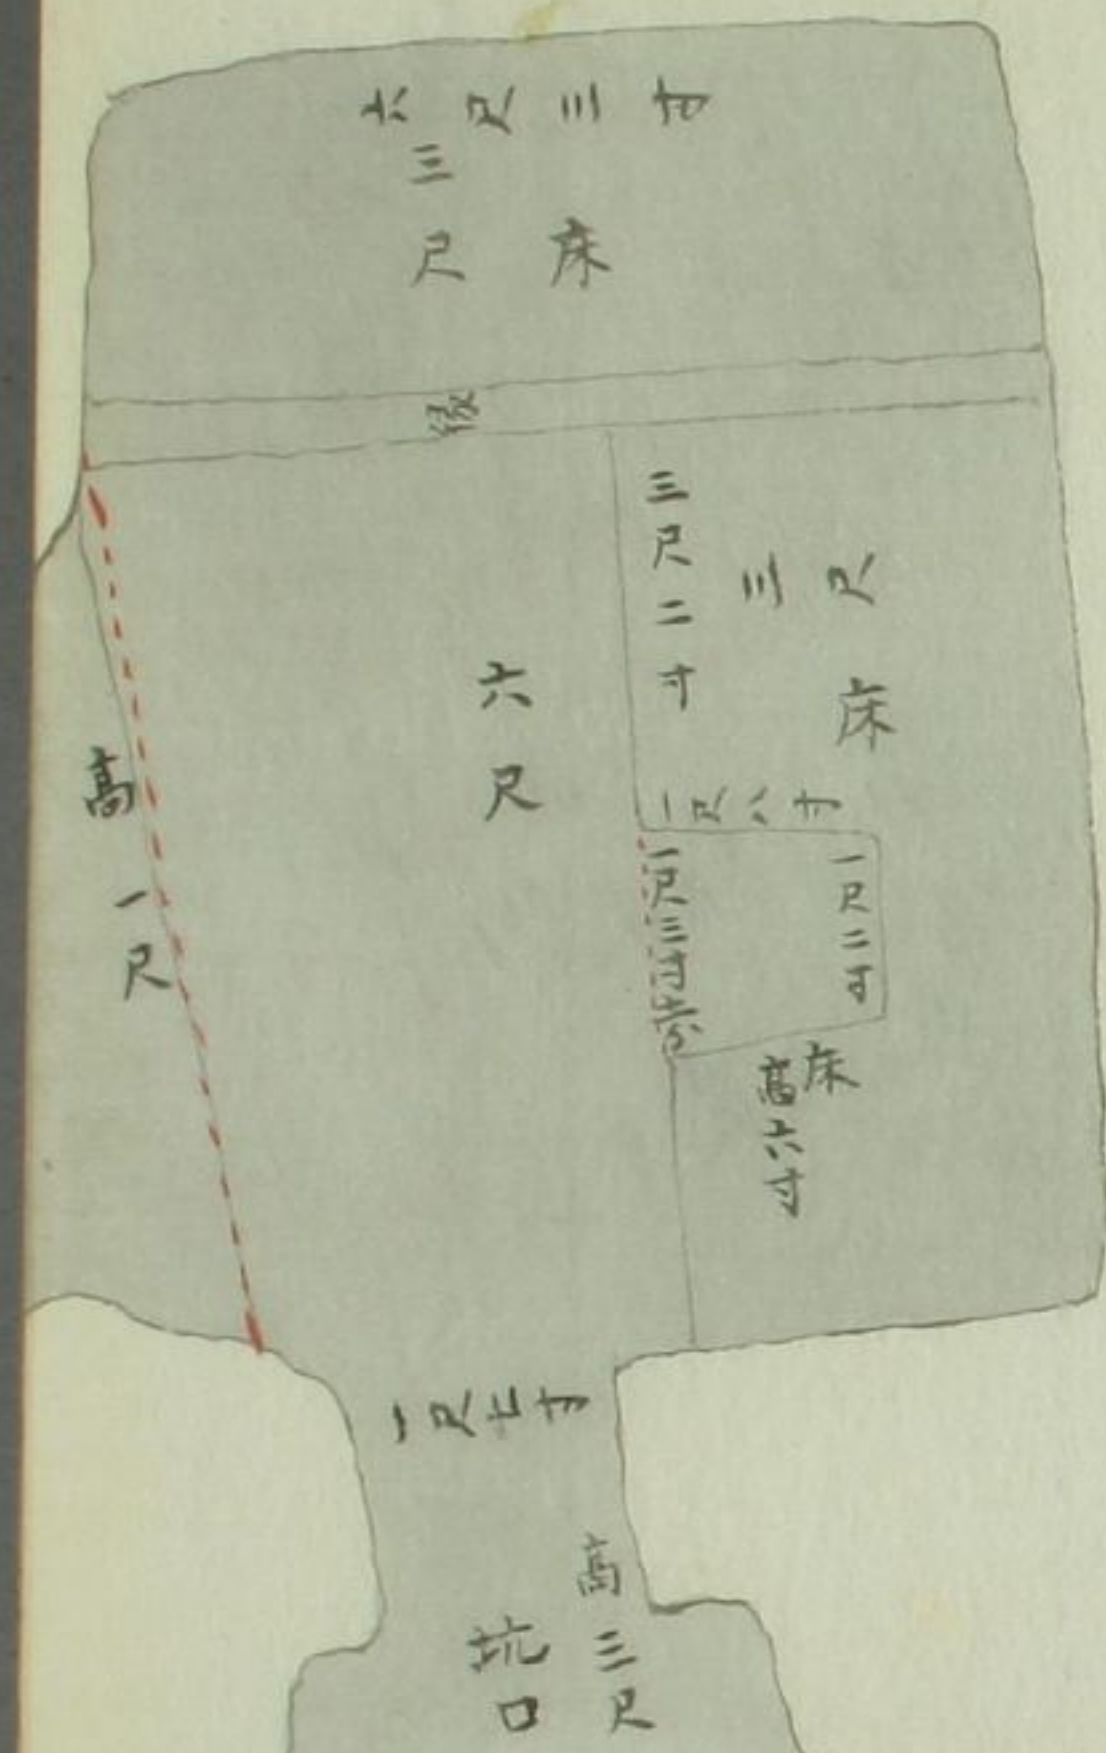 六尺三寸
三尺
床
縁
三尺二寸
三尺
床
六尺
一尺八寸
一尺三寸六分
一尺二寸
床
高六寸
高一尺
一尺七寸
高三尺
坑口